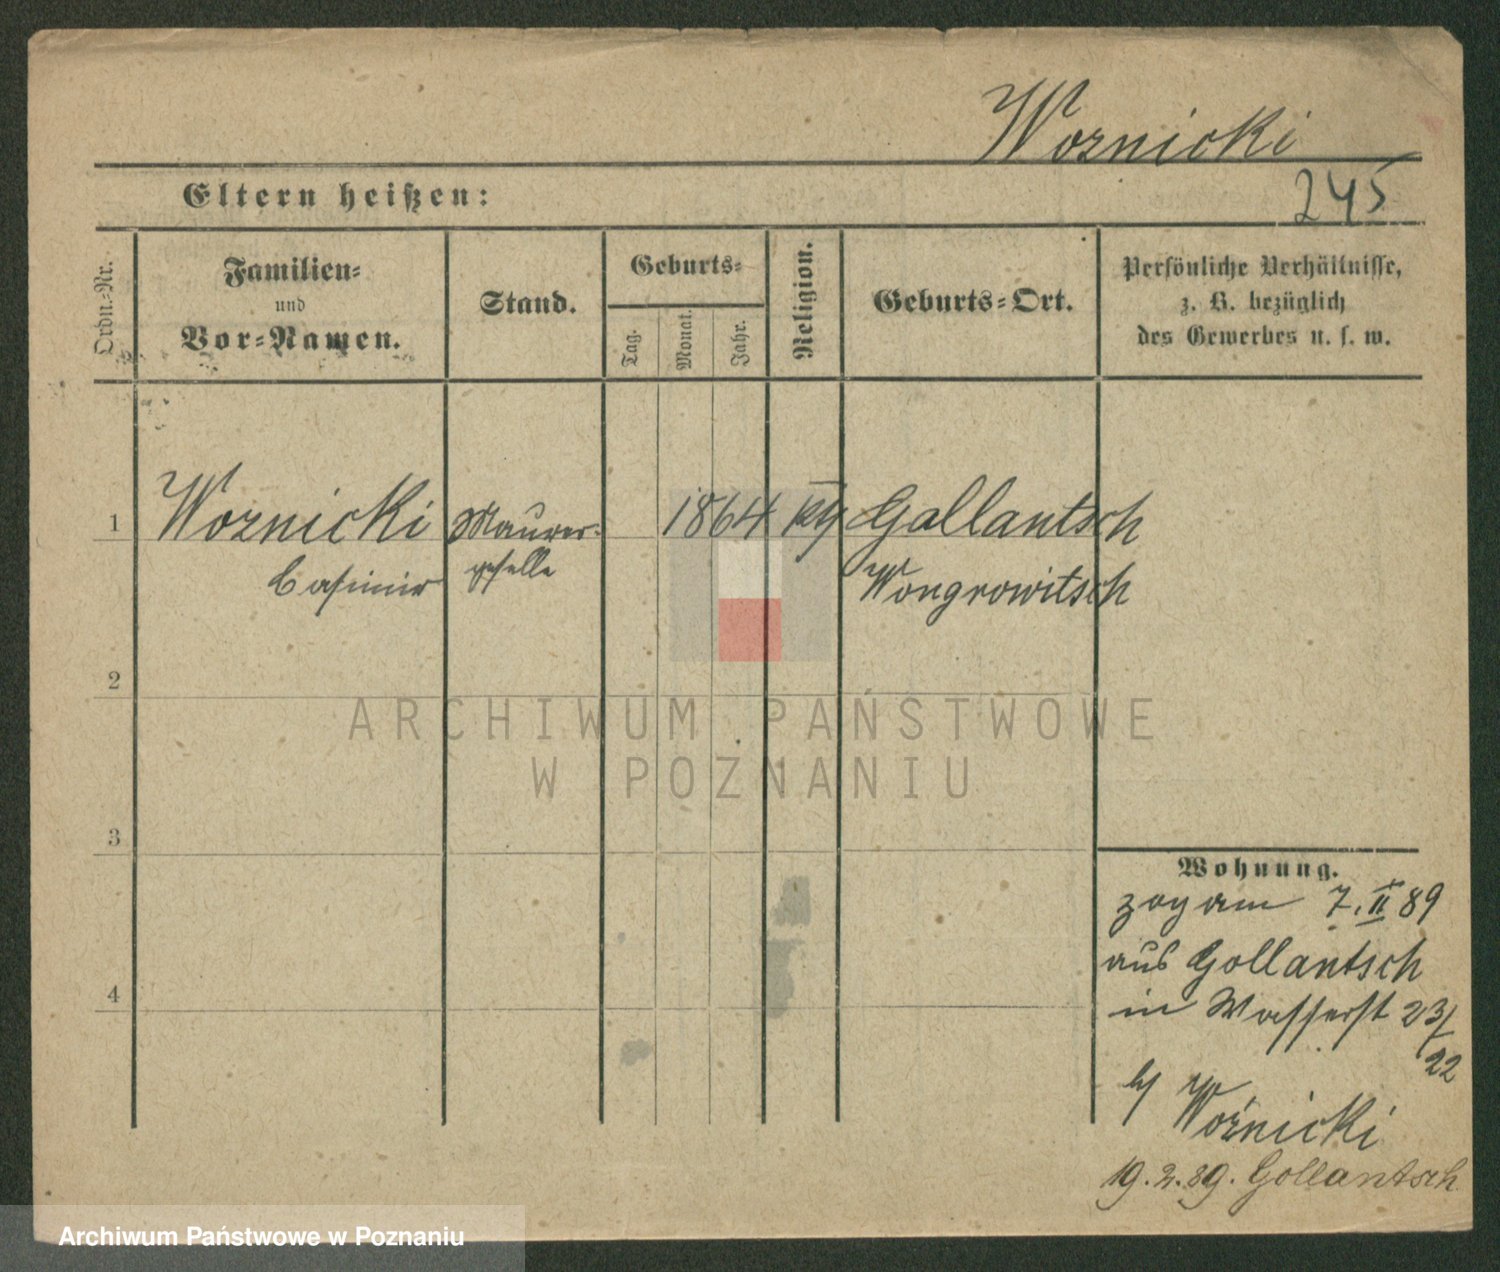 Woznicki
Eltern heißen:
245
Ordn.-Nr.
Familien-
und
Vor-Namen.
Stand.
Geburts-
Tag.
Monat.
Jahr.
Religion.
Geburts-Ort.
Persönliche Verhältnisse,
z. B. bezüglich
des Gewerbes u. s. w.
1
Woznicki
Casimir
Maurer-
geselle
1864
Gollantsch
Wongrowitsch
2
ARCHIWUM PAŃSTWOWE
W POZNANIU
3
4
Wohnung.
zog am 7. II 89
aus Gollantsch
in Wasserst 23/
22
b/ Woźnicki
19.2.89. Gollantsch
Archiwum Państwowe w Poznaniu